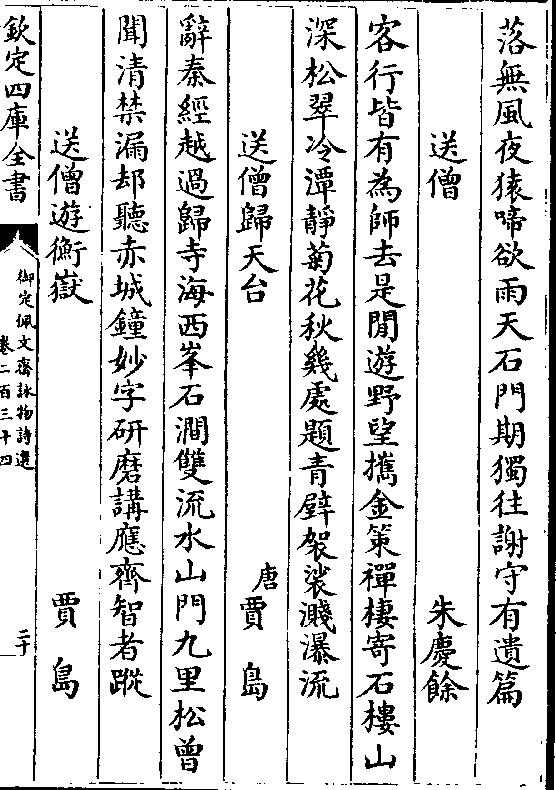 落無風夜猿啼欲雨天石門期獨往謝守有遺篇
送僧 朱慶餘
客行皆有為師去是閒遊野望攜金策禪棲寄石樓山
深松翠冷潭靜菊花秋幾處題青壁袈裟濺瀑流
送僧歸天台 唐賈島
辭秦經越過歸寺海西峯石澗雙流水山門九里松曾
聞清禁漏却聽赤城鐘妙字研磨講應齊智者蹤
送僧遊衡嶽 賈島
欽定四庫全書
御定佩文齋詠物詩選
卷二百三十四
二十